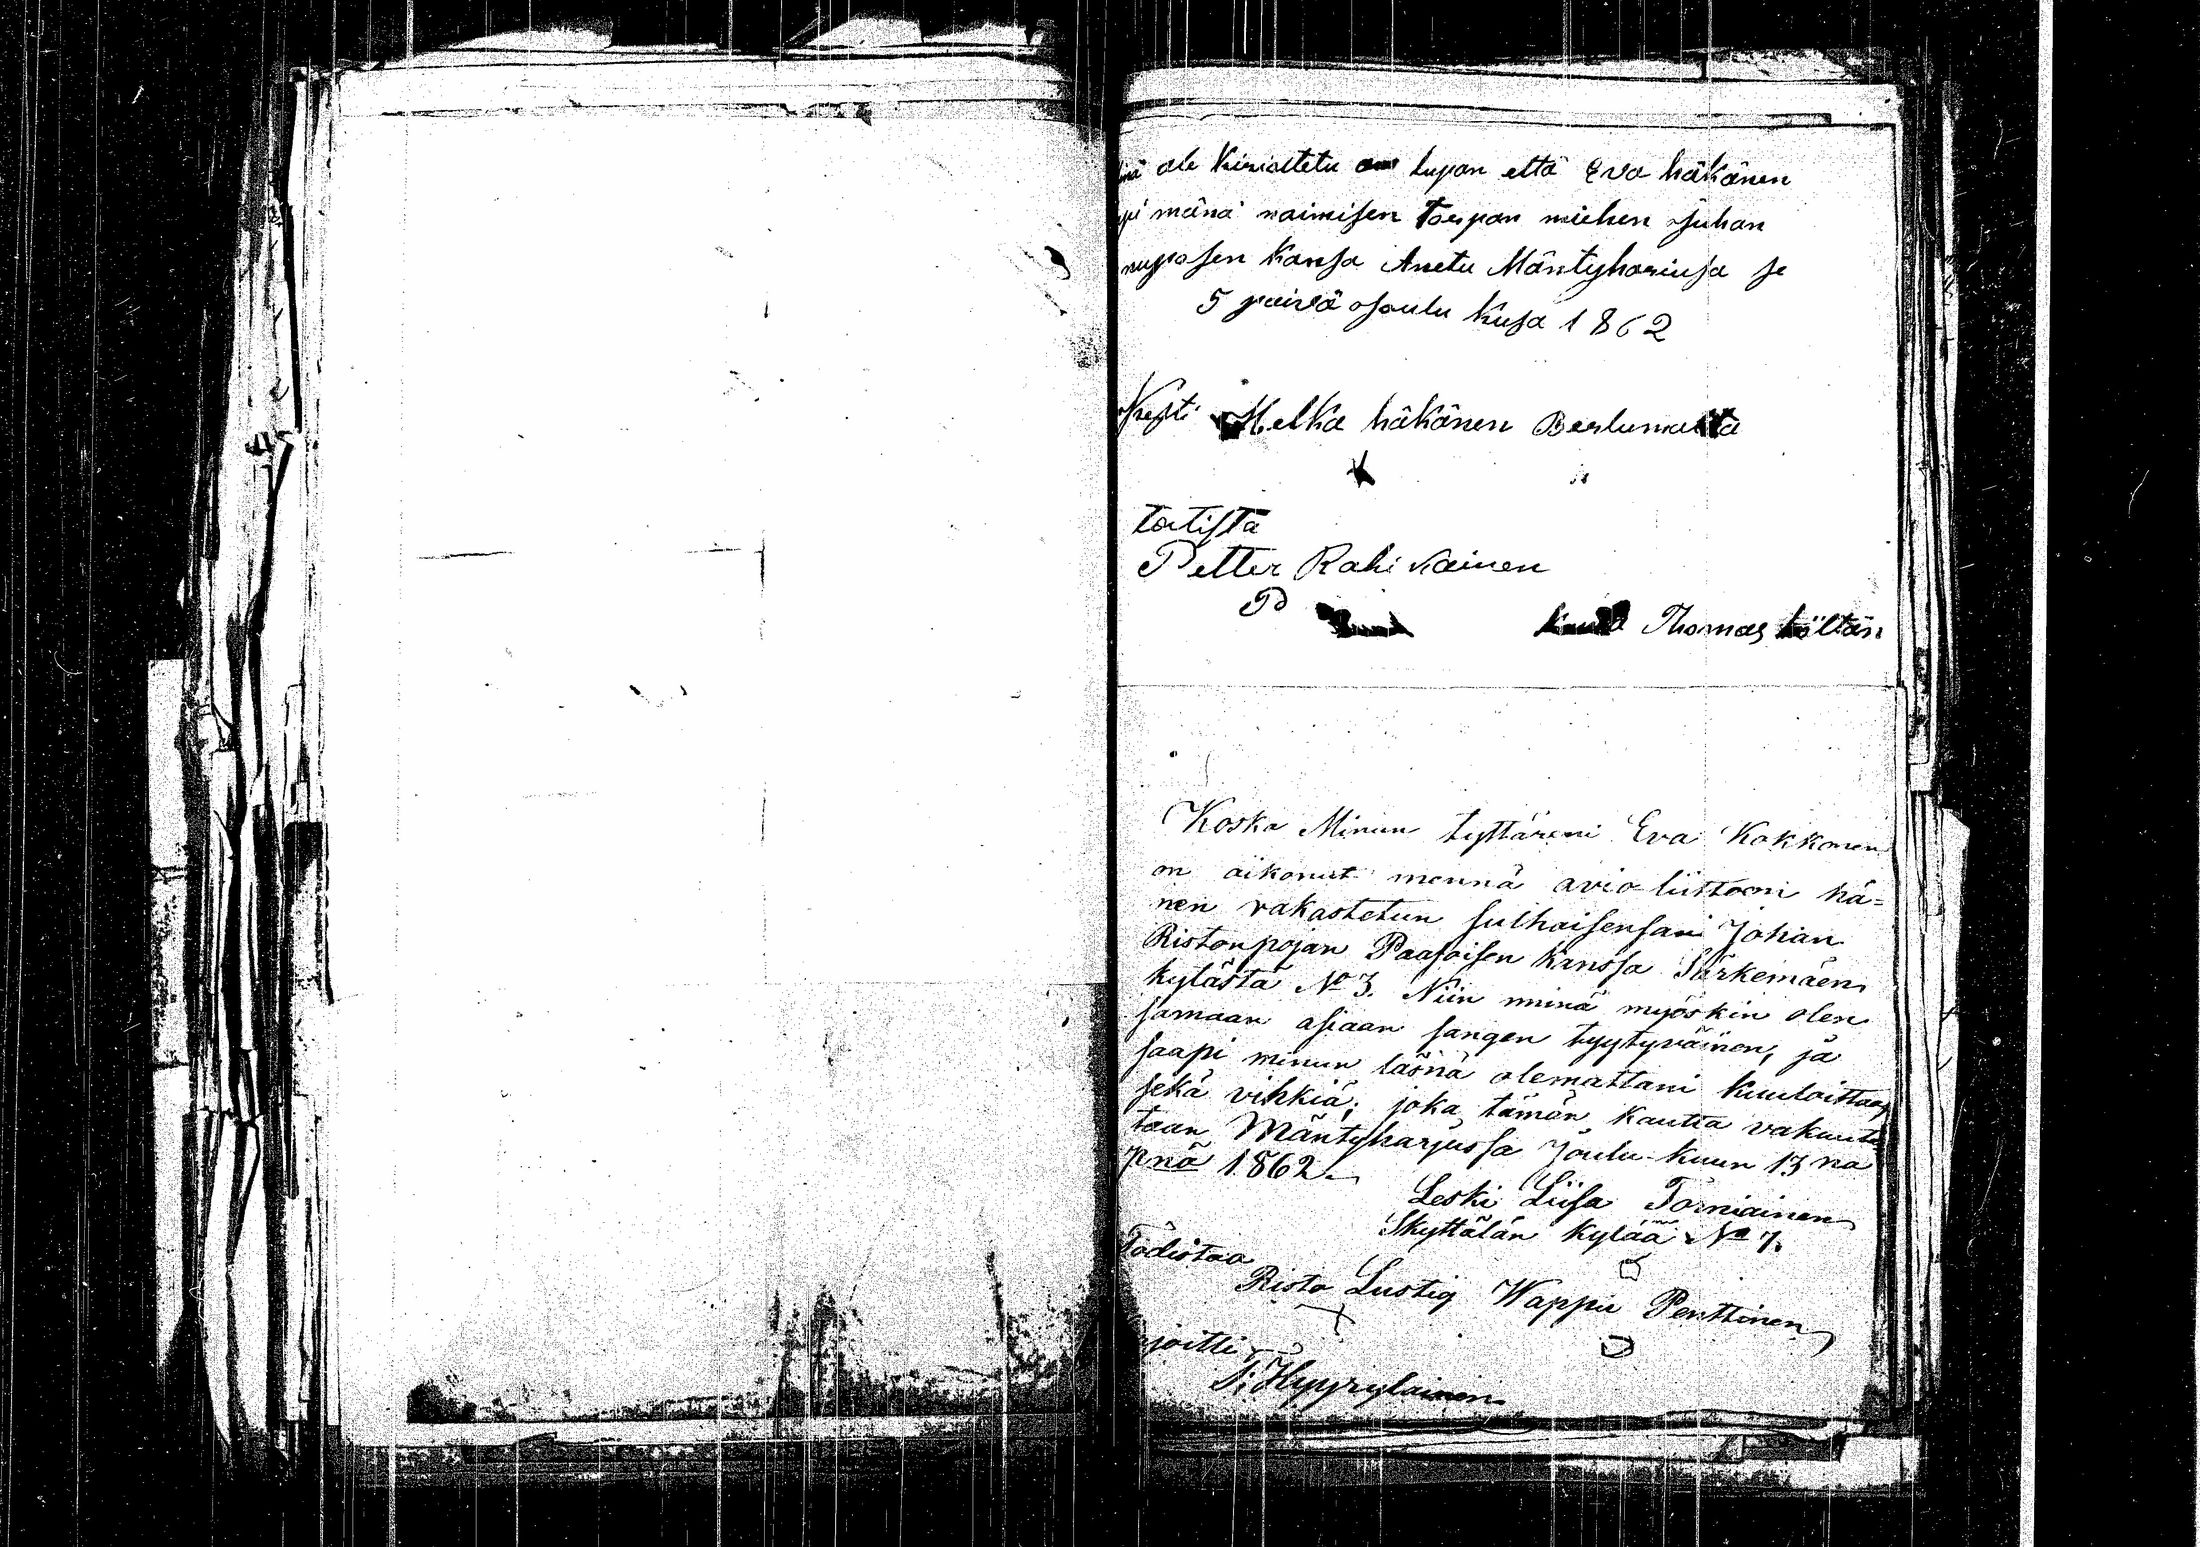 ole kirioitetu lupan että Eva häkänen
pi mänä naimisen Torpan miehen Juhan
nuposen kansa Anetu Mäntyhariusa se
5 päivä Joulu kusa 1862
leski Helka häkänen
totista
Petter Rahikainen
P
Thomas höltän
Koska Minun tyttäreni Eva Kokkonen
on aikonut mennä avio-liittoon hä=
nen rakastetun sulhaisensani Johan
Ristonpojan Paasoisen kanssa Särkemäen
kylästä No 3. Niin minä myöskin olen
samaan asiaan sangen tyytyväinen, ja
saapi minun läsnä olemattani kuuloittaa
sekä vihkiä; joka tämän kautta vakuute
taan Mäntyharjussa Joulu-kuun 13 na
pnä 1862.
Leski Liisa Torniainen
Skyttälän kylää No 7.
Todistaa
Risto Lustig Wappu Penttinen
joitti
P. Hyyryläinen